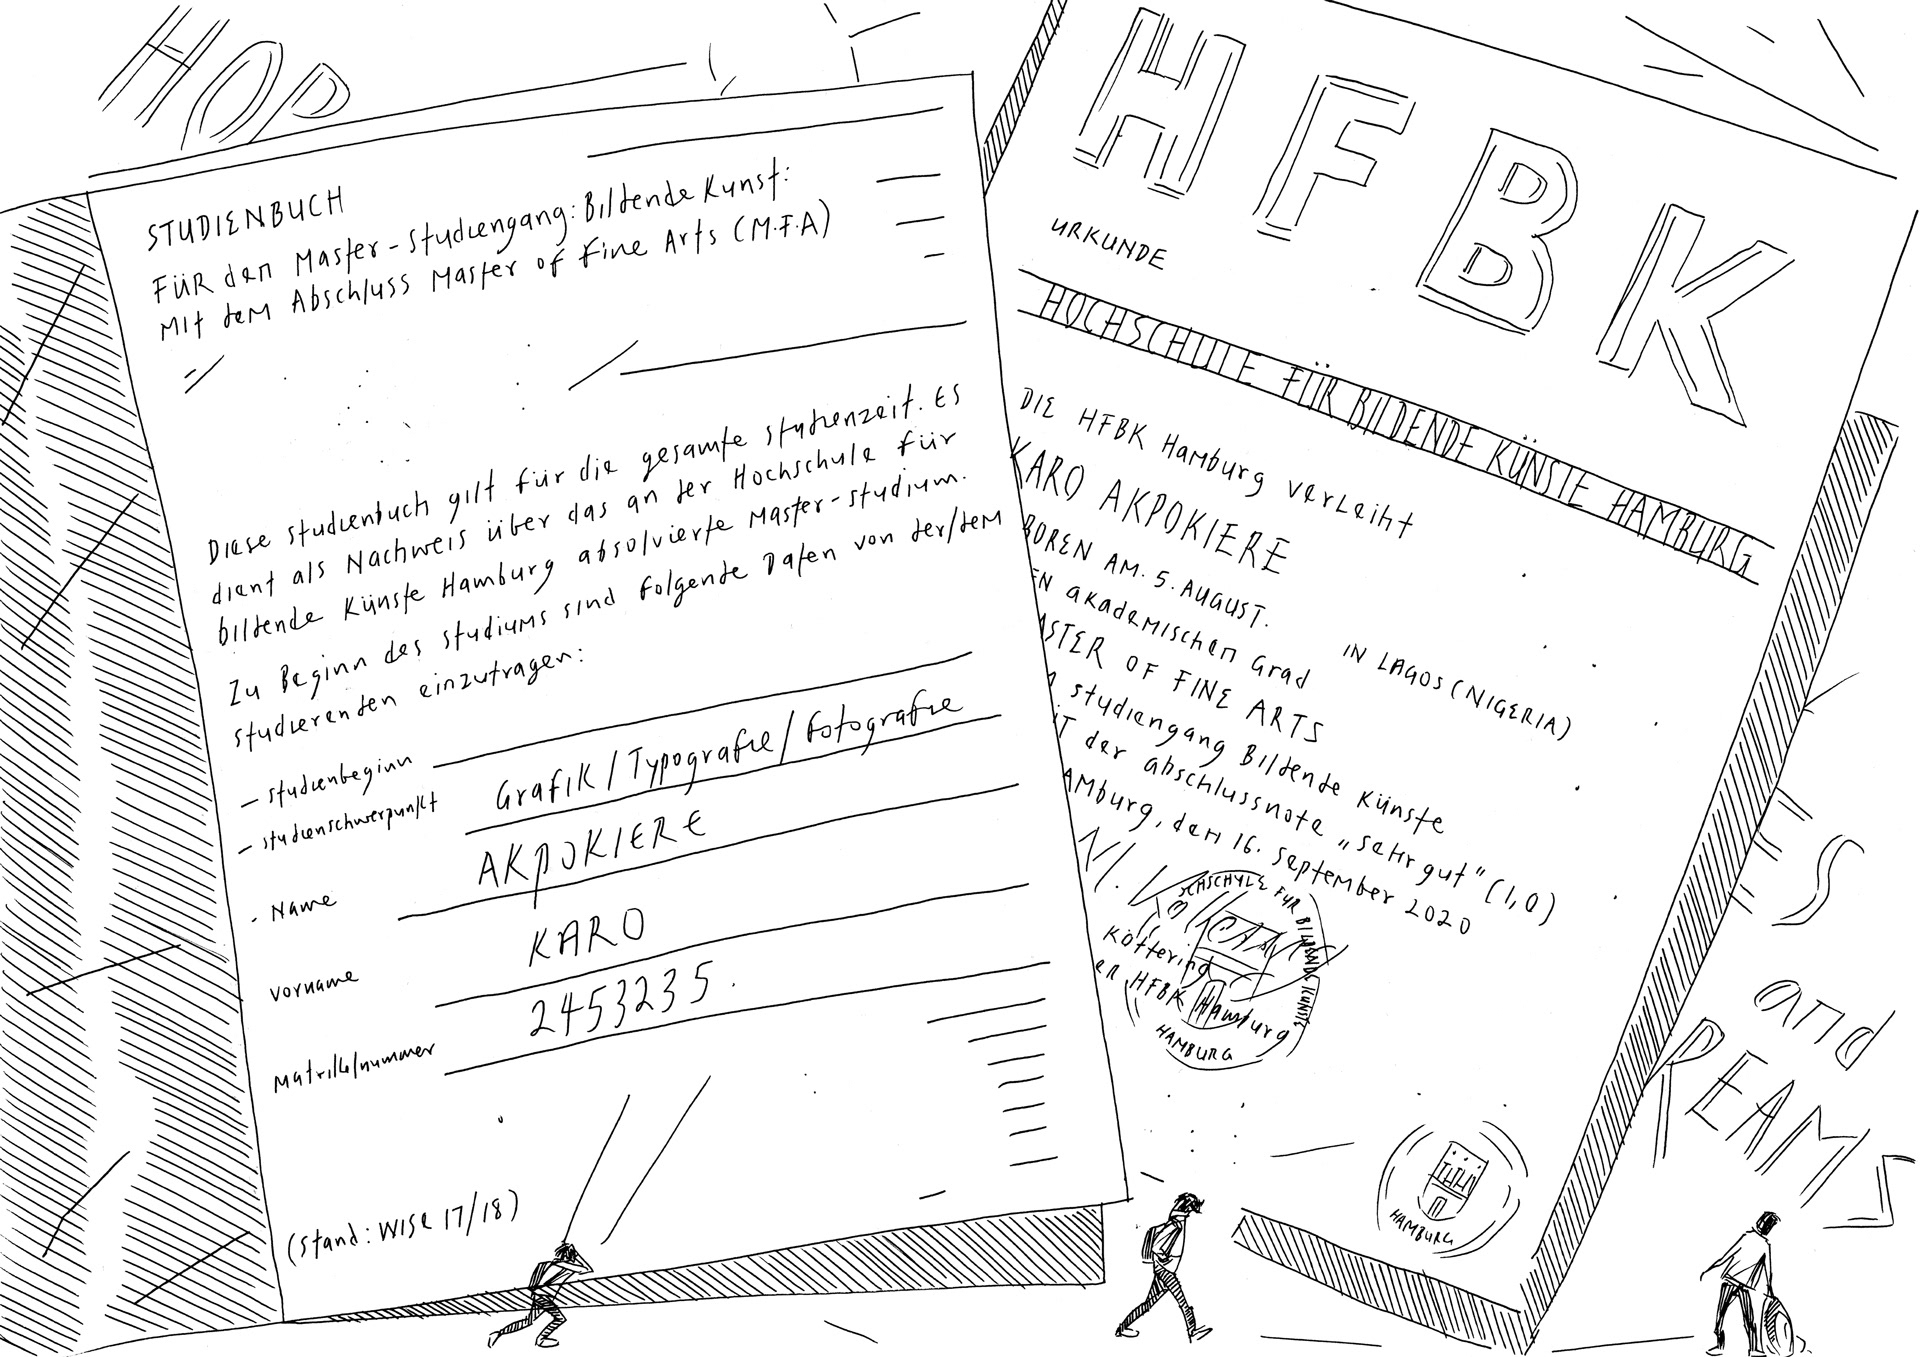 HOP
STUDIENBUCH
FÜR den Master-Studiengang: Bildende Kunst:
Mit dem Abschluss Master of Fine Arts (M.F.A)
Diese Studienbuch gilt für die gesamte Studienzeit. Es
dient als Nachweis über das an der Hochschule für
bildende Künste Hamburg absolvierte Master-Studium.
Zu Beginn des Studiums sind folgende Daten von der/dem
Studierenden einzutragen:
- Studienbeginn
- Studienschwerpunkt Grafik/Typografie/Fotografie
- Name AKPOKIERE
Vorname KARO
Matrikelnummer 2453235.
(Stand: WiSe 17/18)
HFBK
URKUNDE
HOCHSCHULE FÜR BILDENDE KÜNSTE HAMBURG
DIE HFBK Hamburg verleiht
KARO AKPOKIERE
BOREN AM. 5. AUGUST. IN LAGOS (NIGERIA)
EN akademischen Grad
ASTER OF FINE ARTS
Studiengang Bildende Künste
IT der abschlussnote „sehr gut" (1,0)
AMburg, den 16. September 2020
Köttering
ER HFBK Hamburg
HAMBURG
HAMBURG
ES
and
REAMS